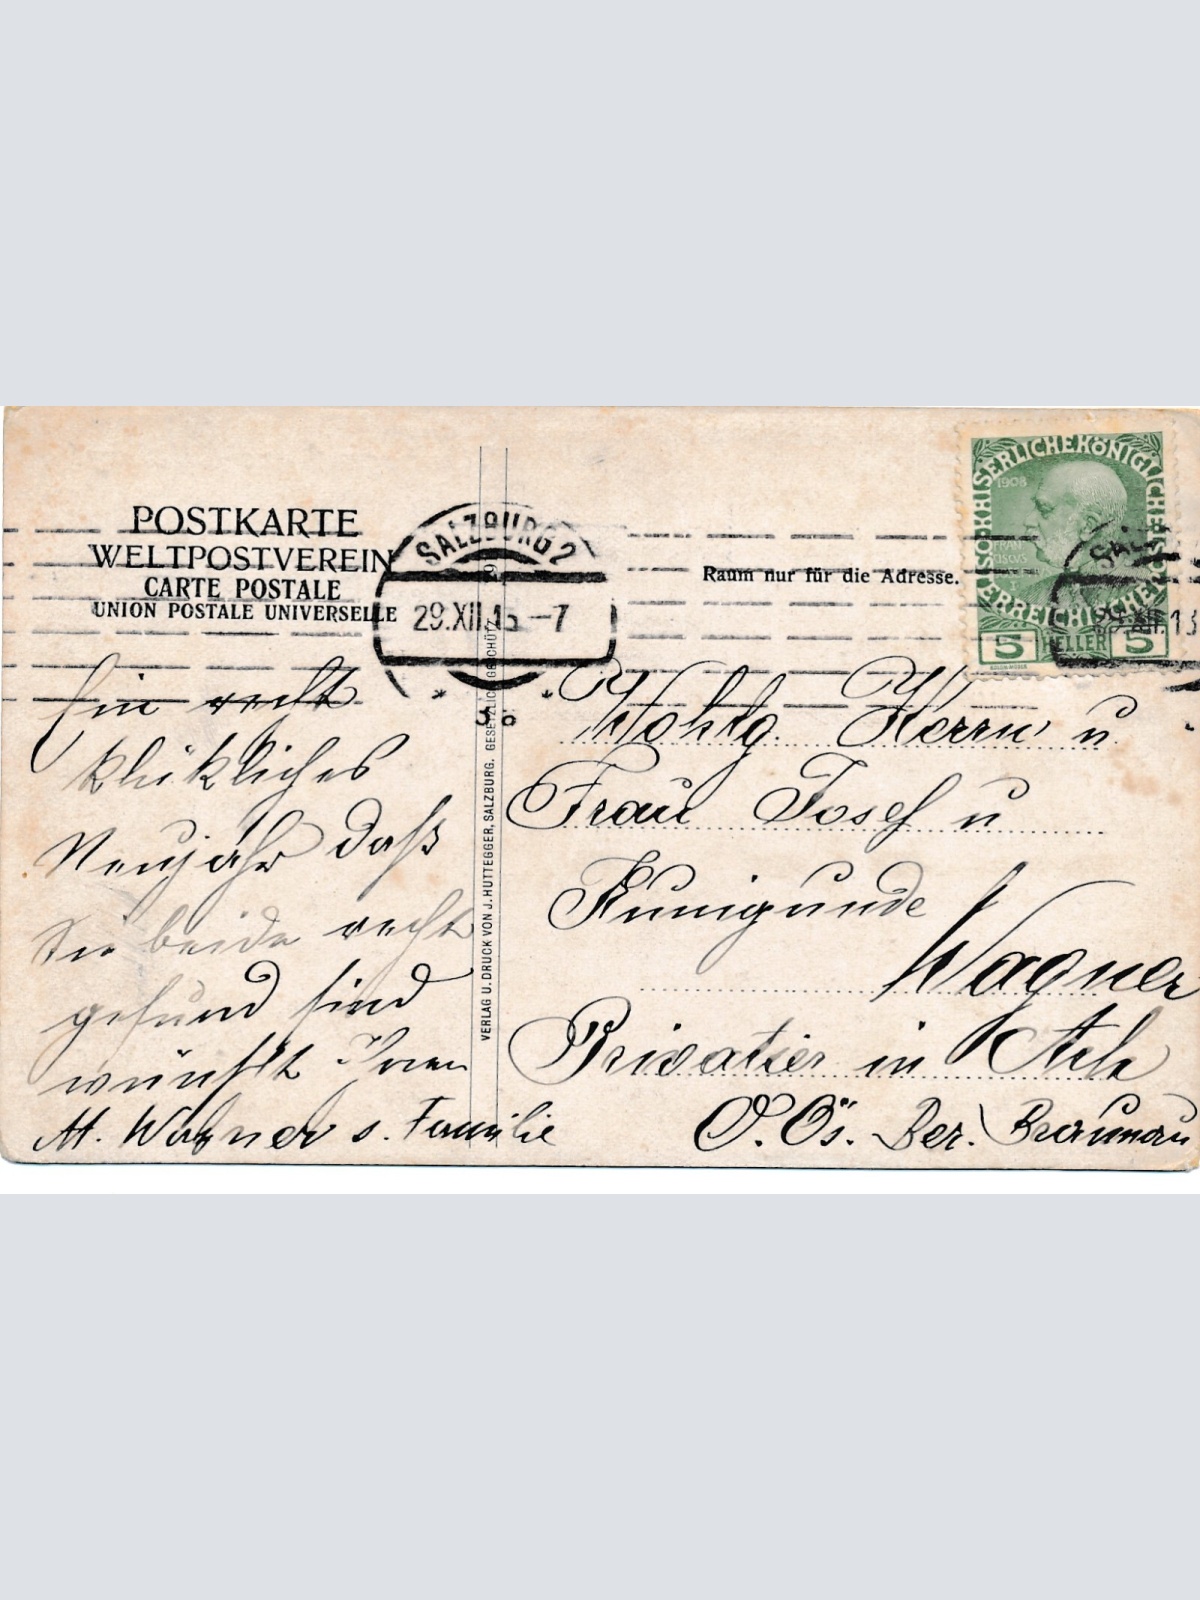 POSTKARTE
WELTPOSTVEREIN
CARTE POSTALE
UNION POSTALE UNIVERSELLE
SALZBURG 2
29.XII.13 -7
* 3b *
Raum nur für die Adresse.
KAISERLICHEKÖNIGLICHE
ÖSTERREICHISCHE
1908
5 HELLER 5
29.XII.13
VERLAG U. DRUCK VON J. HUTTEGGER, SALZBURG. GESETZLICH GESCHÜTZT
Ein recht
klükliches
Neujahr daß
Sie beide recht
gesund sind
wünscht Ihnen
M. Wagner s. Familie
Wohlg. Herrn u
Frau Josef u
Kunigunde
Wagner
Privatier in Ach
O. Ös. Bez. Braunau